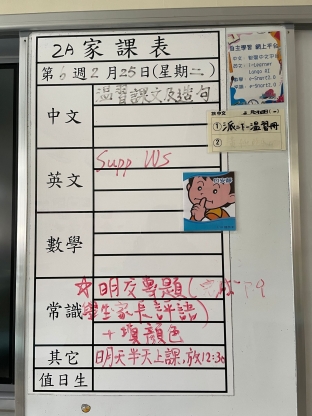 2A 家課表
第6週2月25日(星期二)
中文
溫習課文及造句
英文
Supp WS
數學
常識
☆明交專題(
學生家長評語)
+填顏色
其它
明天半天上課,放12:30
值日生
自主學習 網上平台
①派
溫習冊
②